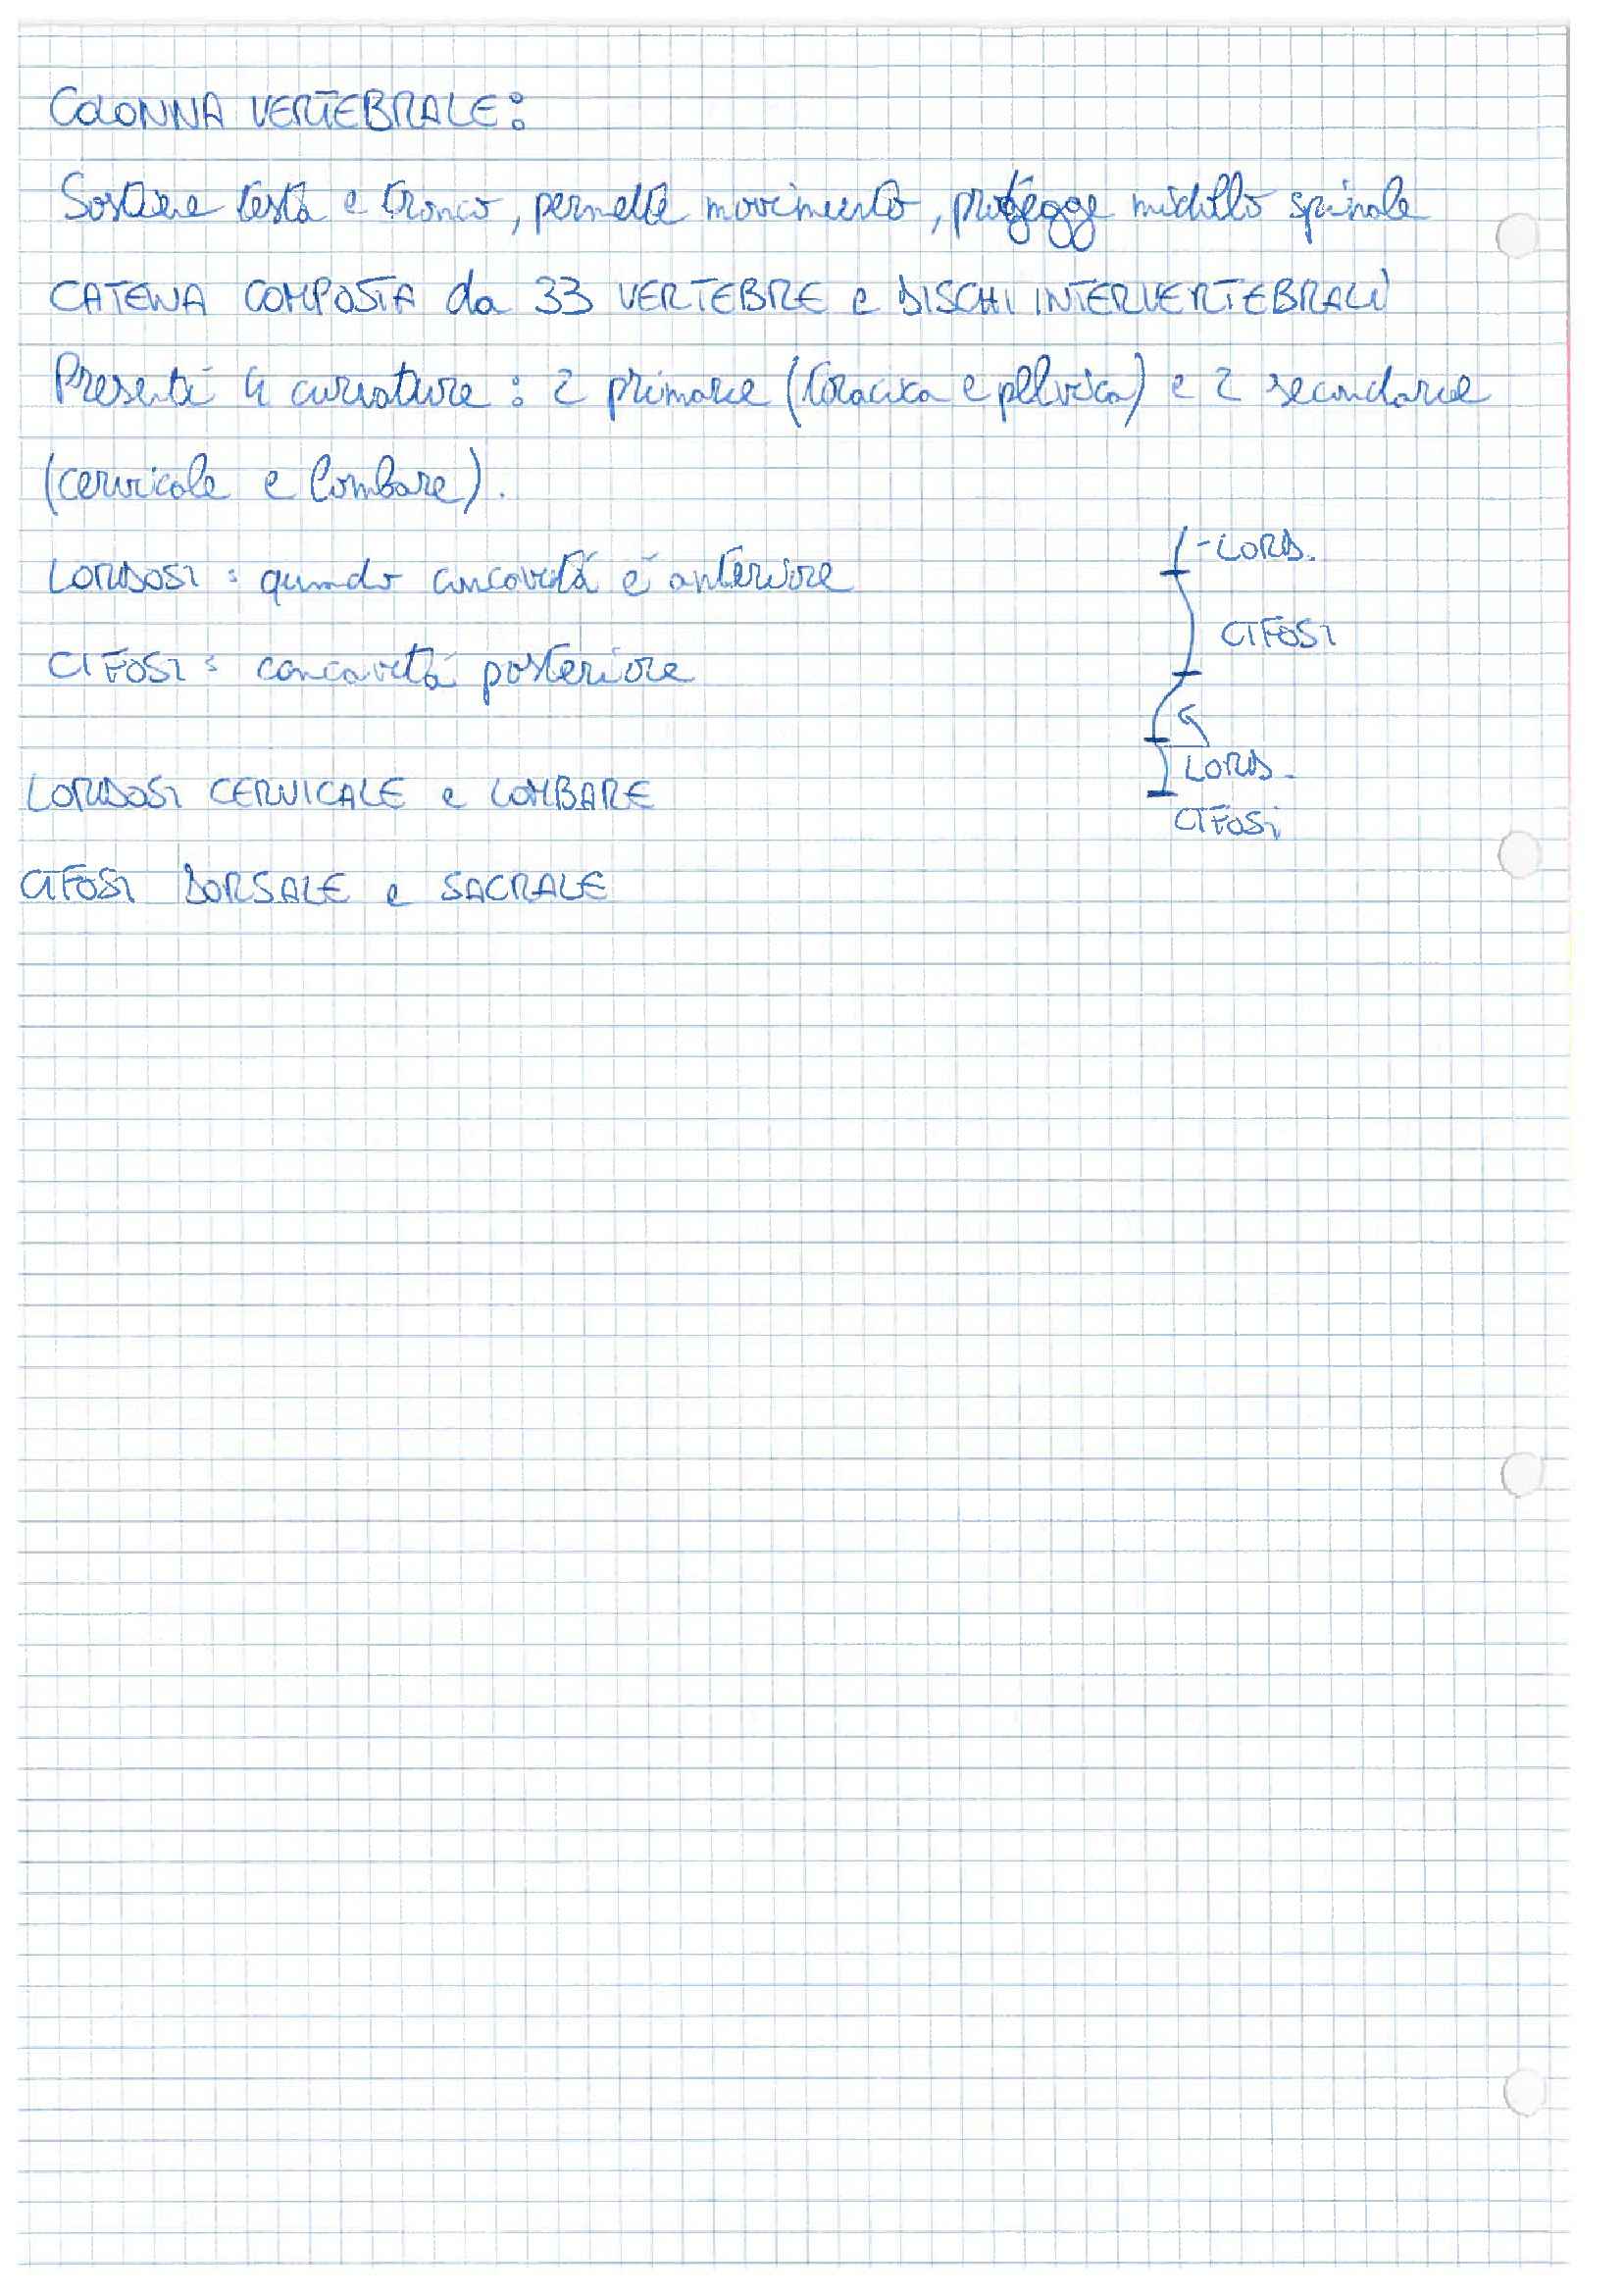 COLONNA VERTEBRALE:
Sostiene testa e tronco, permette movimento, protegge midollo spinale
CATENA COMPOSTA da 33 VERTEBRE e DISCHI INTERVERTEBRALI
Presenti 4 curvature: 2 primarie (toracica e pelvica) e 2 secondarie
(cervicale e lombare).
LORDOSI: quando concavità è anteriore
CIFOSI: concavità posteriore
LORDOSI CERVICALE e LOMBARE
CIFOSI DORSALE e SACRALE
-LORD.
CIFOSI
LORD.
CIFOSi